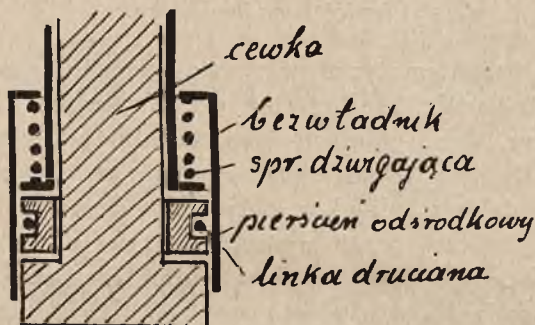 cewka
bezwładnik
spr. dźwigająca
pierścień odśrodkowy
linka druciana